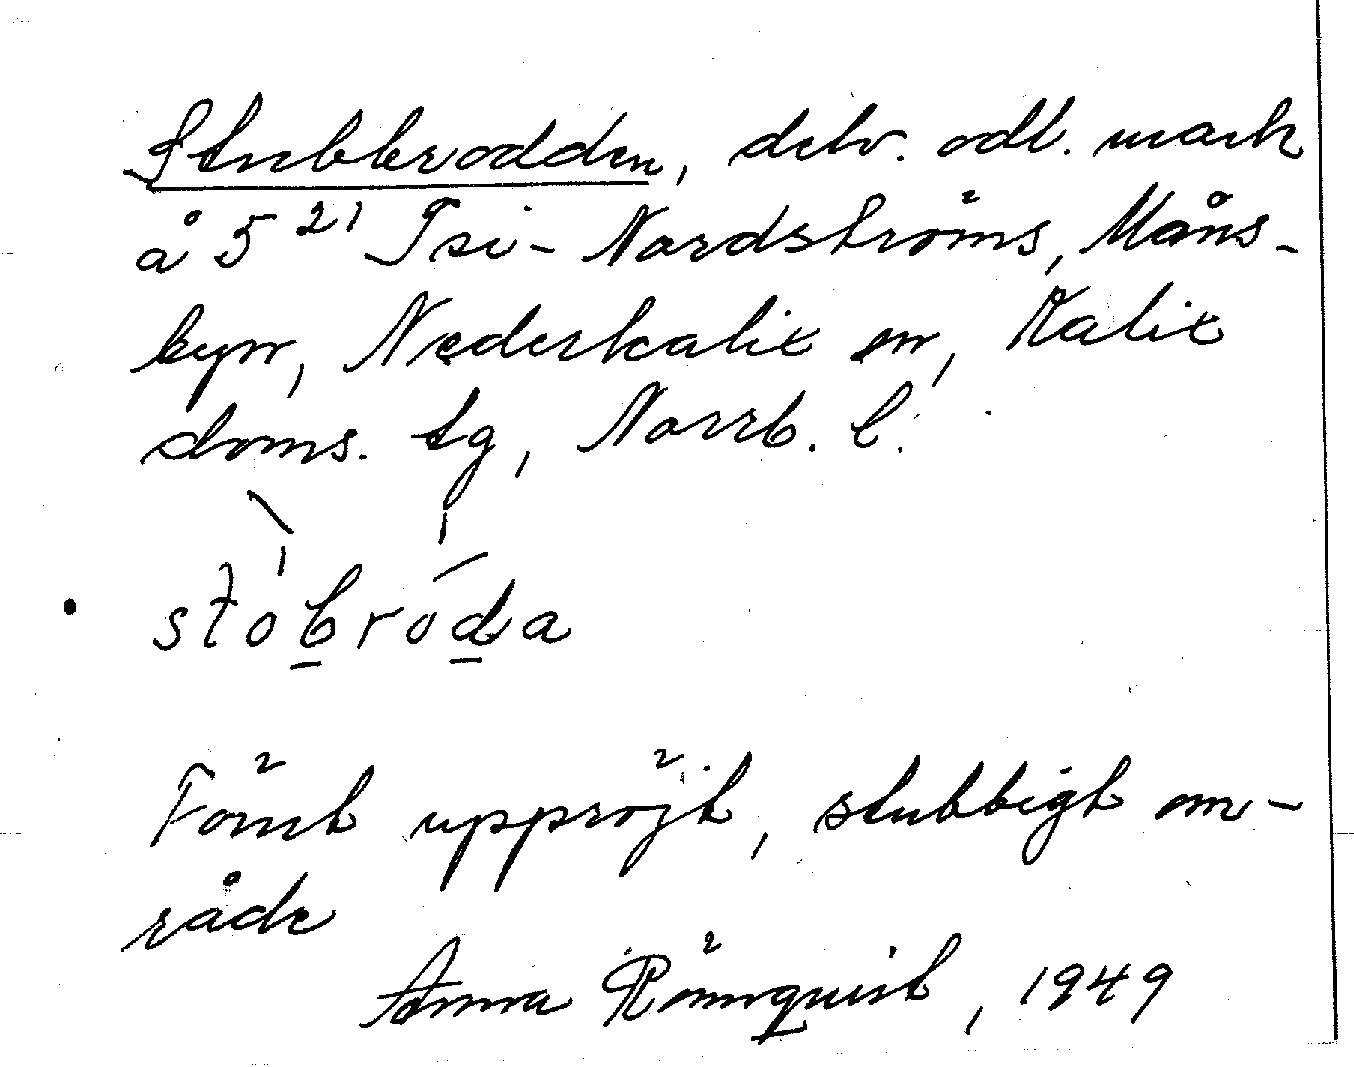 Stubbrodden, delv. odl. mark
å 5²¹ Psi- Nordströms, Måns-
byn, Nederkalix sn, Kalix
doms. tg, Norrb. l.
stobroda
Förut uppröjt, stubbigt om-
råde
Anna Rönnquist, 1949